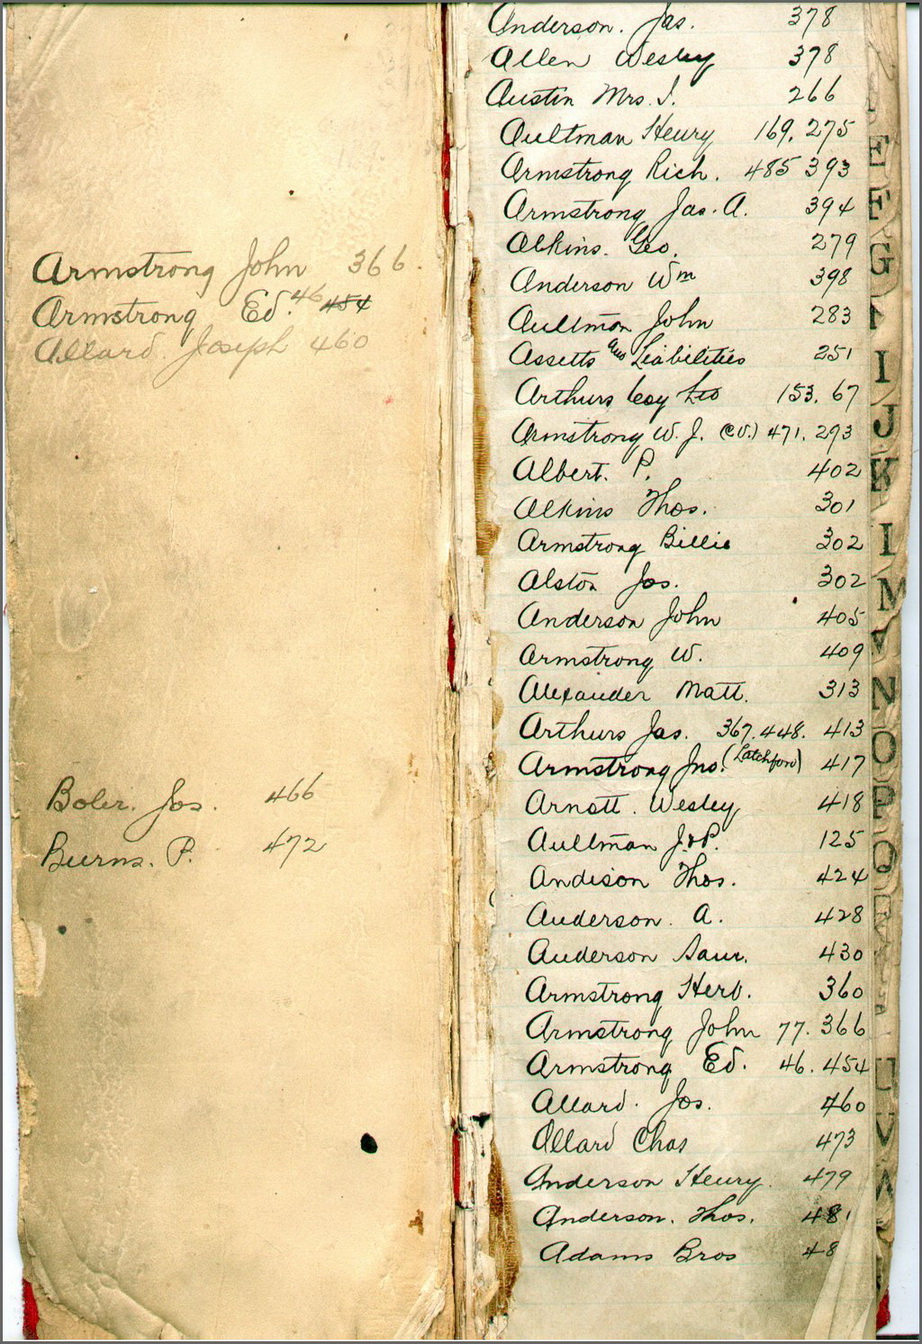 Armstrong John 366.
Armstrong Ed. 46 454
Allard. Joseph 460
Boler. Jos. 466
Burns. P. 472
Anderson. Jas. 378
Allen Wesley 378
Austin Mrs. I. 266
Aultman Henry 169, 275
Armstrong Rich. 485 393
Armstrong Jas. A. 394
Alkins. Geo. 279
Anderson Wm 398
Aultman John 283
Assetts and Liabilities 251
Arthurs Coy Ltd 153. 67
Armstrong W. J. (C.V.) 471. 293
Albert. P. 402
Alkins Thos. 301
Armstrong Billie 302
Alston Jos. 302
Anderson John 405
Armstrong W. 409
Alexander Matt. 313
Arthurs Jas. 367. 448. 413
Armstrong Jno. (Latchford) 417
Arnott. Wesley 418
Aultman J. P. 125
Andison Thos. 424
Anderson. A. 428
Anderson Sam. 430
Armstrong Herb. 360
Armstrong John 77. 366
Armstrong Ed. 46. 454
Allard. Jos. 460
Allard Chas 473
Anderson Henry. 479
Anderson. Thos. 48
Adams Bros 48
E
F
G
I
J
K
L
M
N
O
P
Q
R
U
V